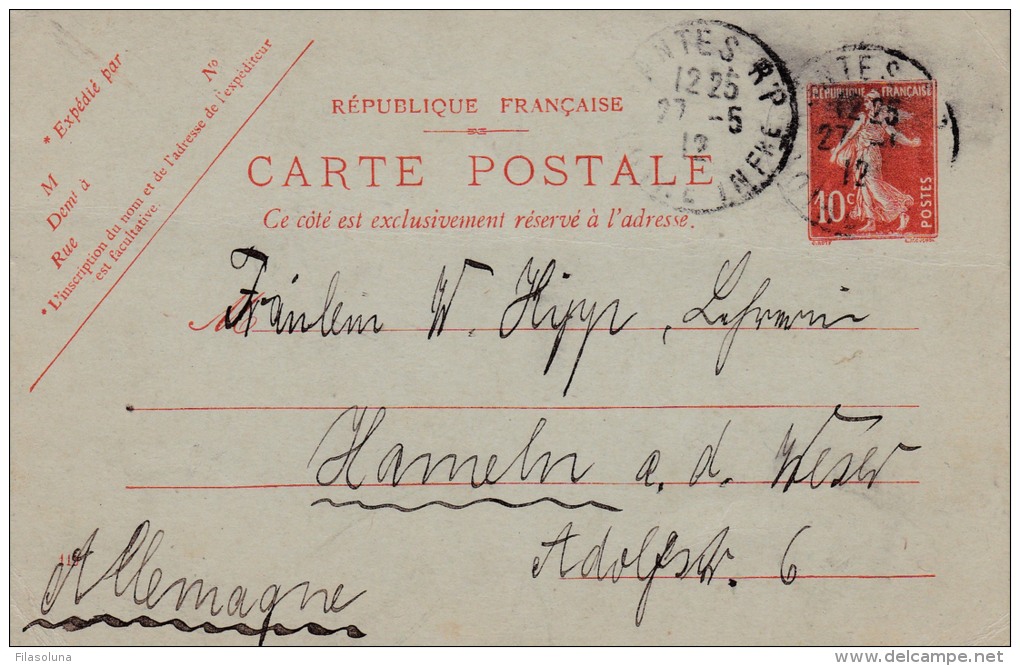 * Expédié par
M
Demt à
Rue
No
* L'inscription du nom et de l'adresse de l'expéditeur
est facultative.
RÉPUBLIQUE FRANÇAISE
CARTE POSTALE
Ce côté est exclusivement réservé à l'adresse.
NTES R.P.
12 25
27 -5
12
INFRE
NTES
RÉPUBLIQUE FRANÇAISE
12 25
27
12
10c
POSTES
Fräulein W. Hipp, Lehrerin
Hameln a. d. Weser
Adolfstr. 6
Allemagne
Filasoluna
delcampe.net